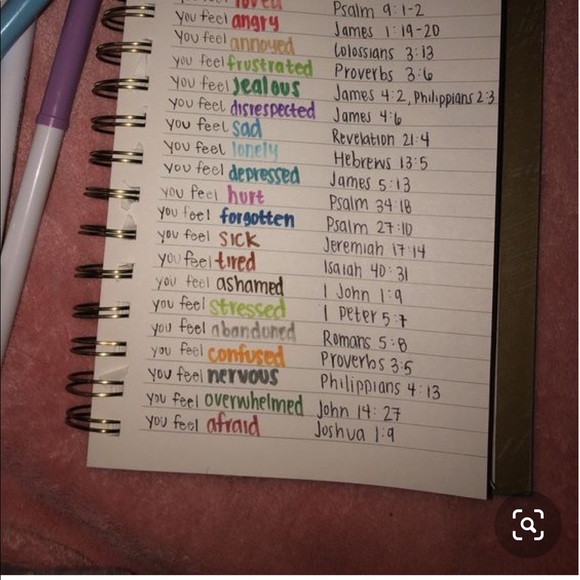 you feel loved Psalm 9:1-2
you feel angry James 1:19-20
you feel annoyed Colossians 3:13
you feel frustrated Proverbs 3:6
you feel jealous James 4:2, Philippians 2:3
you feel disrespected James 4:6
you feel sad Revelation 21:4
you feel lonely Hebrews 13:5
you feel depressed James 5:13
you feel hurt Psalm 34:18
you feel forgotten Psalm 27:10
you feel sick Jeremiah 17:14
you feel tired Isaiah 40:31
you feel ashamed 1 John 1:9
you feel stressed 1 Peter 5:7
you feel abandoned Romans 5:8
you feel confused Proverbs 3:5
you feel nervous Philippians 4:13
you feel overwhelmed John 14:27
you feel afraid Joshua 1:9